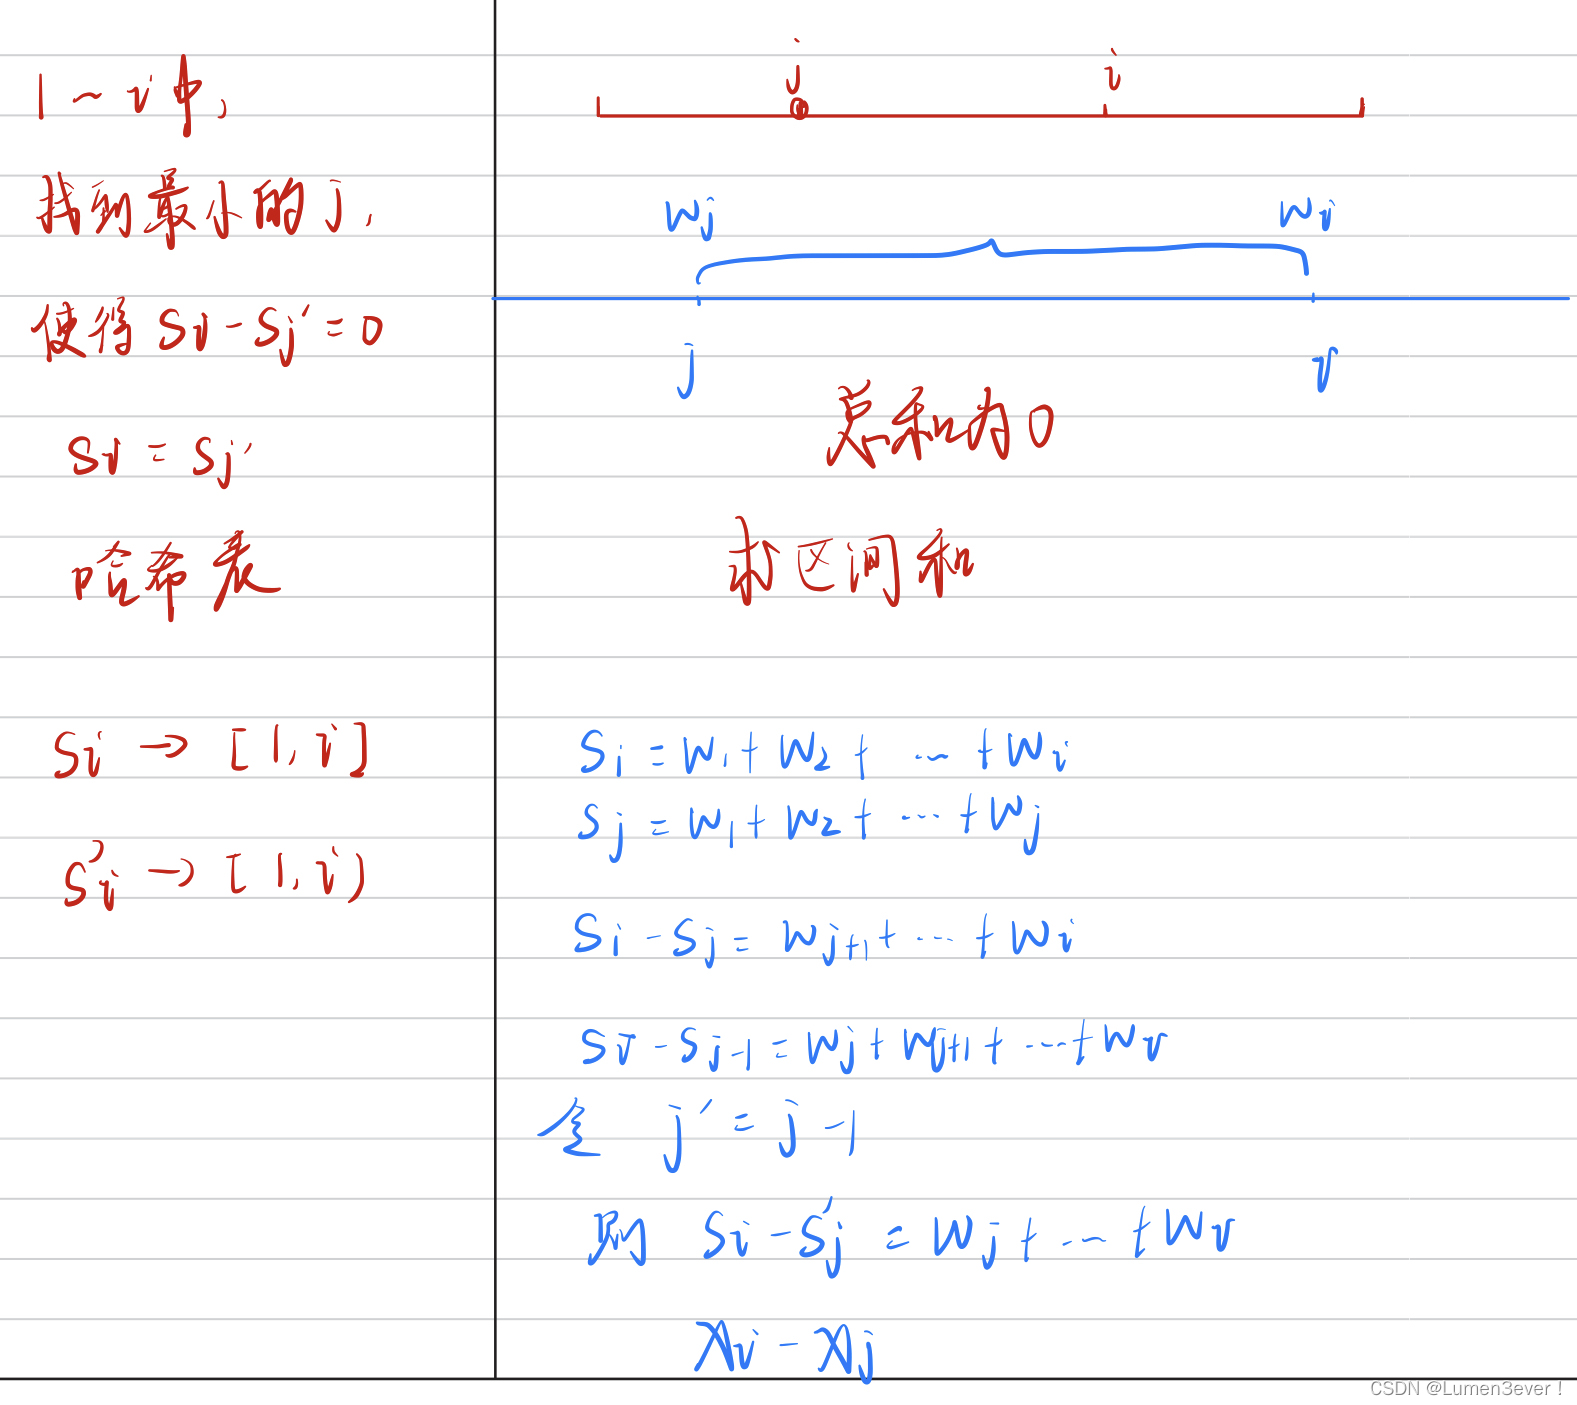 1~i中,
找到最小的j,
使得 Si-Sj'=0
Si=Sj'
哈希表
Si→[1,i]
S'i→[1,i)
j i
Wj Wi
j i
总和为0
求区间和
Si=W1+W2+…+Wi
Sj=W1+W2+…+Wj
Si-Sj=Wj+1+…+Wi
Si-Sj-1=Wj+Wj+1+…+Wi
令 j'=j-1
则 Si-S'j=Wj+…+Wi
Xi-Xj
CSDN @Lumen3ever!